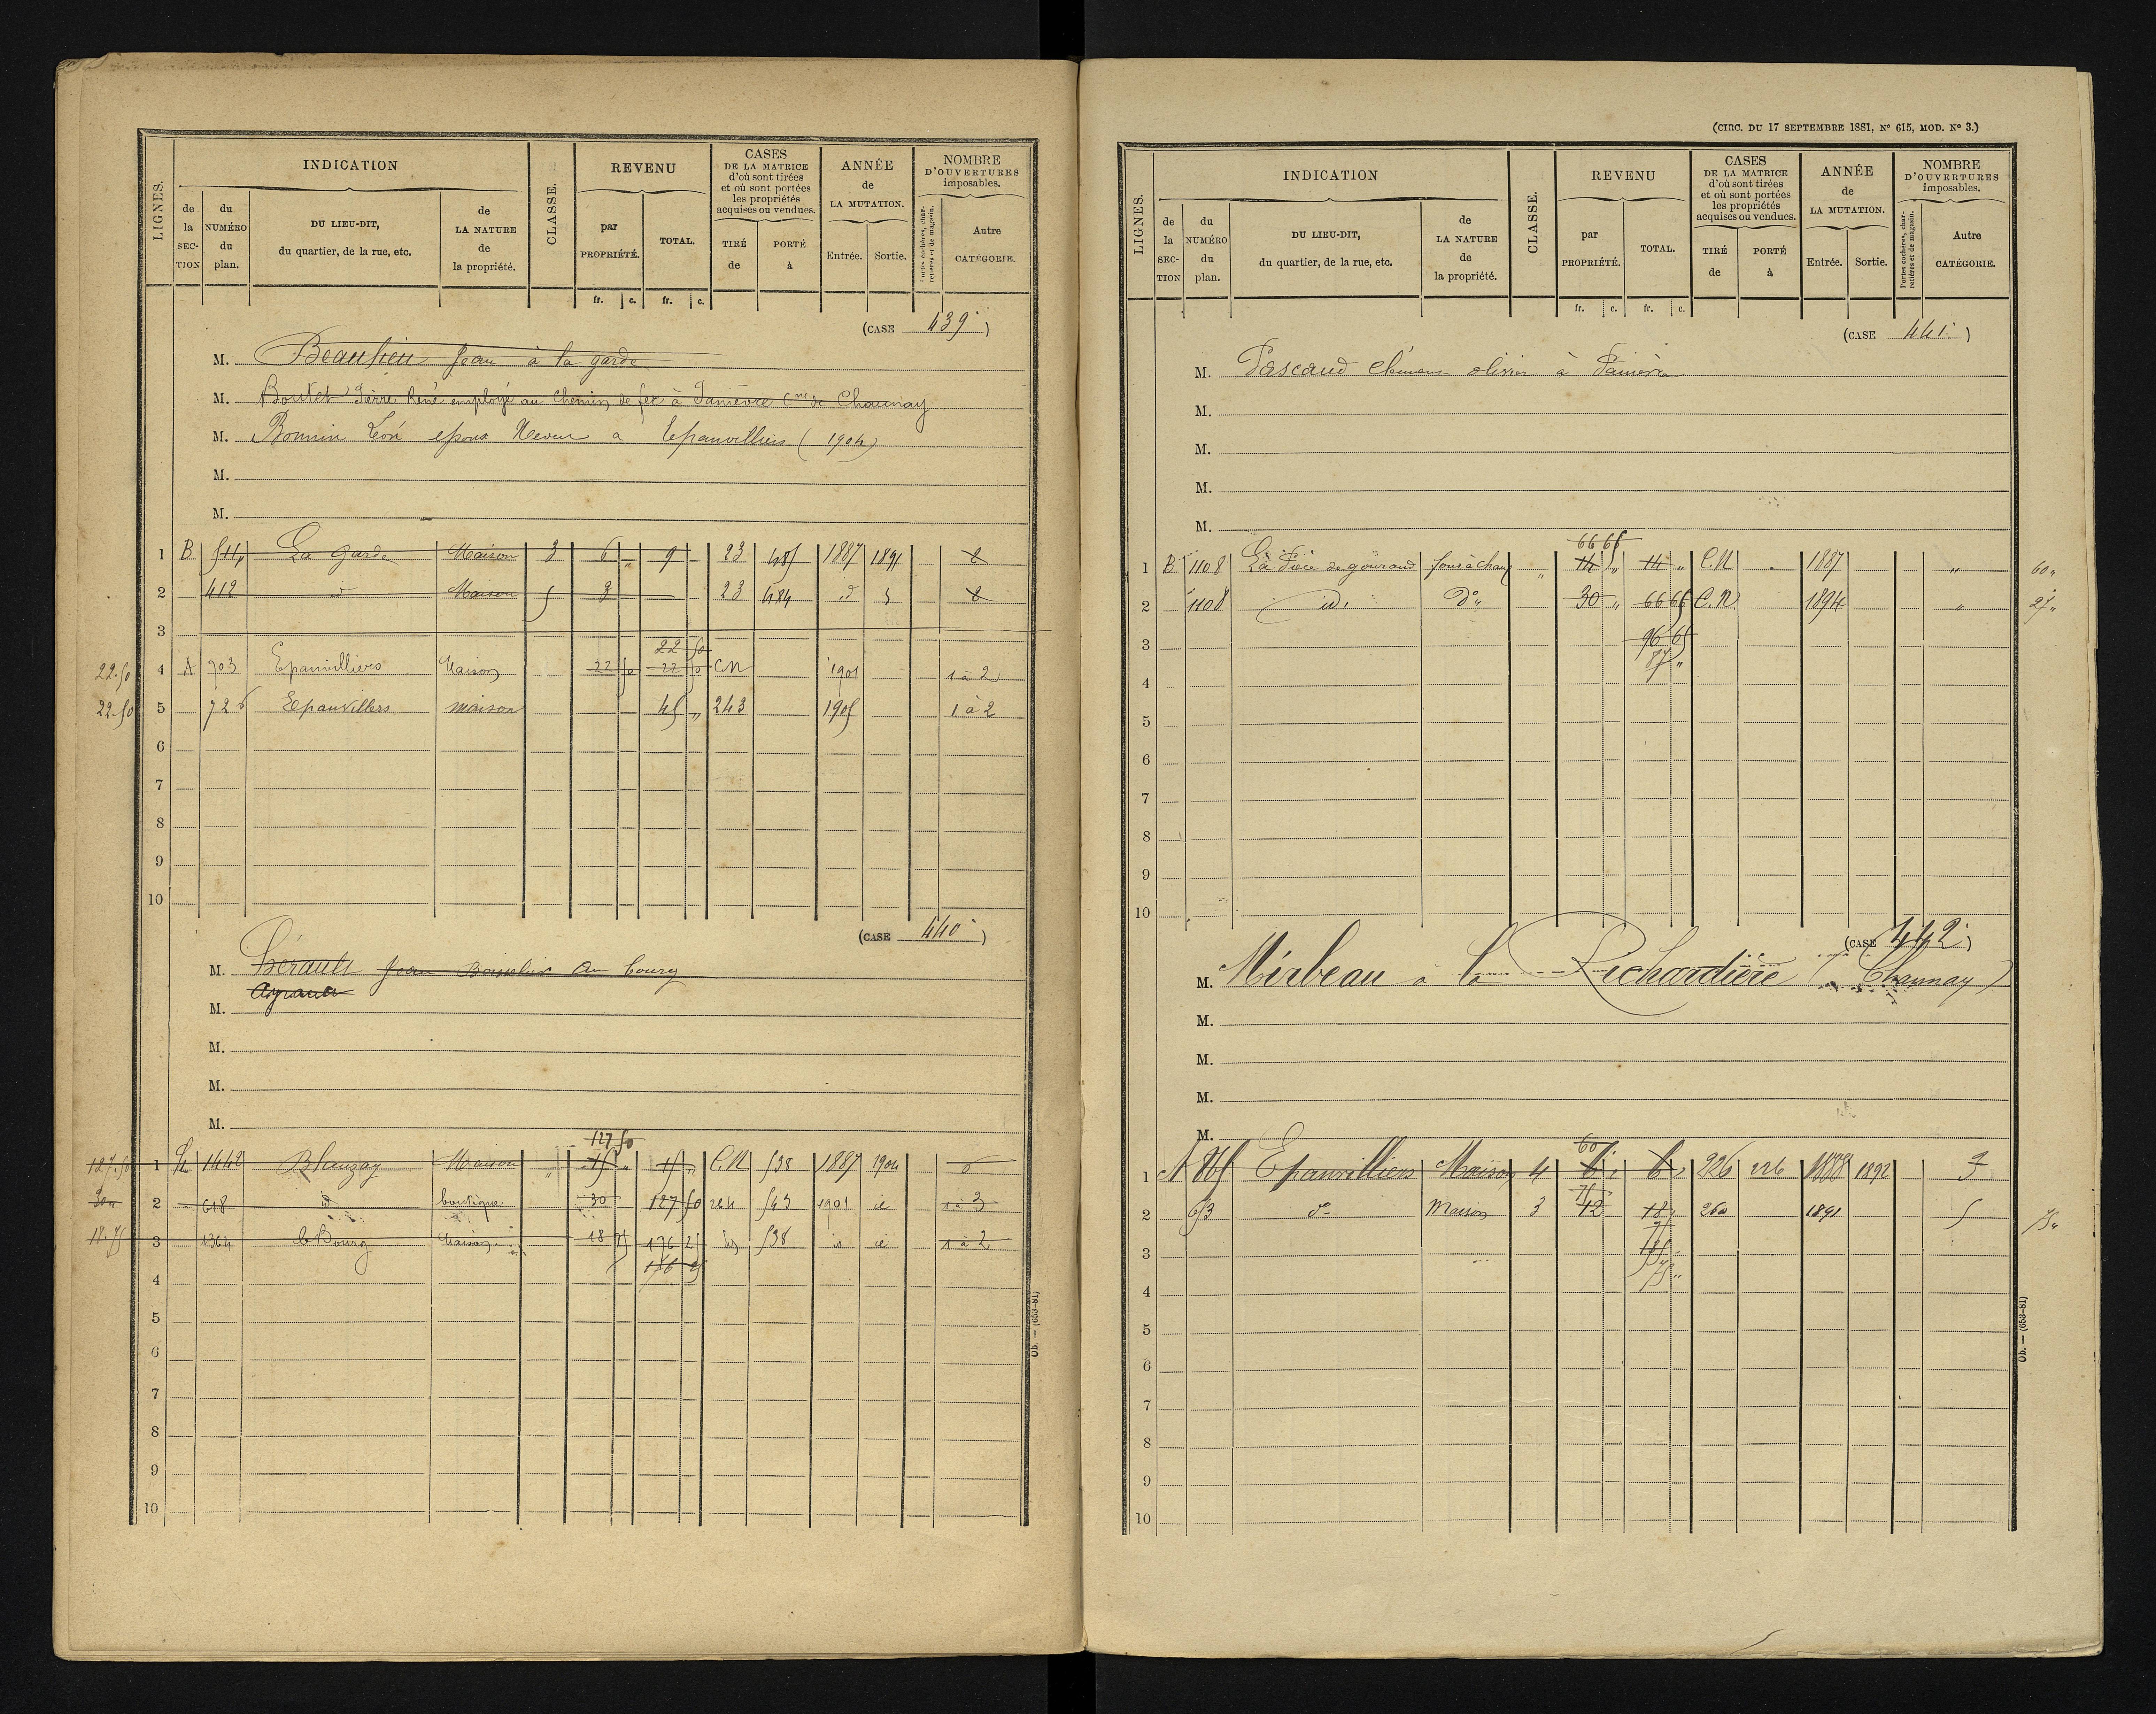 LIGNES. INDICATION CLASSE. REVENU CASES DE LA MATRICE d'où sont tirées et où sont portées les propriétés acquises ou vendues. ANNÉE de LA MUTATION. NOMBRE D'OUVERTURES imposables.
de la SECTION du NUMÉRO du plan. DU LIEU-DIT, du quartier, de la rue, etc. de LA NATURE de la propriété. par PROPRIÉTÉ. TOTAL. TIRÉ de PORTÉ à Entrée. Sortie. Portes cochères, charretières et de magasin. Autre CATÉGORIE.
fr. c. fr. c.
(CASE 439)
M. Beaulieu Jean à la garde
M. Boutet Pierre René employé au Chemin de fer à Panièvre Cne de Chaunay
M. Bonnin Léon époux à Epanvilliers (1904)
M.
M.
1 B 514 La garde Maison 3 6 „ 9 23 485 1887 1891 2
2 412 d Maison 5 3 23 484 d 2
3 22 50
22.50 4 A 703 Epanvilliers Maison 22 50 22 50 CN 1901 1 à 2
22.50 5 726 Epanvillers maison 45 „ 243 1905 1 à 2
6
7
8
9
10
(CASE 440)
M. Hérault Jean au bourg
Ayrault
M.
M.
M.
M.
127 50
127.50 1 1442 Blanzay Maison 15 „ 15 „ C.N 538 1887 1904 6
30 „ 2 618 d boutique 30 127 50 244 543 1901 1 à 3
18.75 3 1364 le Bourg Maison 18 75 176 25 538 1 à 2
4
5
6
7
8
9
10
Ob. — (653-81)
(CIRC. DU 17 SEPTEMBRE 1881, No 615, MOD. No 3.)
LIGNES. INDICATION CLASSE. REVENU CASES DE LA MATRICE d'où sont tirées et où sont portées les propriétés acquises ou vendues. ANNÉE de LA MUTATION. NOMBRE D'OUVERTURES imposables.
de la SECTION du NUMÉRO du plan. DU LIEU-DIT, du quartier, de la rue, etc. de LA NATURE de la propriété. par PROPRIÉTÉ. TOTAL. TIRÉ de PORTÉ à Entrée. Sortie. Portes cochères, charretières et de magasin. Autre CATÉGORIE.
fr. c. fr. c.
(CASE 441)
M. Pascaud olivier à Panièvre
M.
M.
M.
M.
66 65
1 B 1108 La Pièce de gouraud four à chaux „ 14 „ 14 „ C.N 1887 „ 60 „
2 1108 id. Do „ 30 „ 66 65 C.N 1894 „ 27 „
3 96 65
87 „
4
5
6
7
8
9
10
(CASE 442)
M. Mirbeau à la Richardière (Chaunay)
M.
M.
M.
M.
60
1 A 865 Epanvilliers Maison 4 6 „ 6 „ 226 226 1888 1892 3
75
2 653 do Maison 3 12 18 „ 260 1891 5 75 „
3 135
75 „
4
5
6
7
8
9
10
Ob. — (653-81)